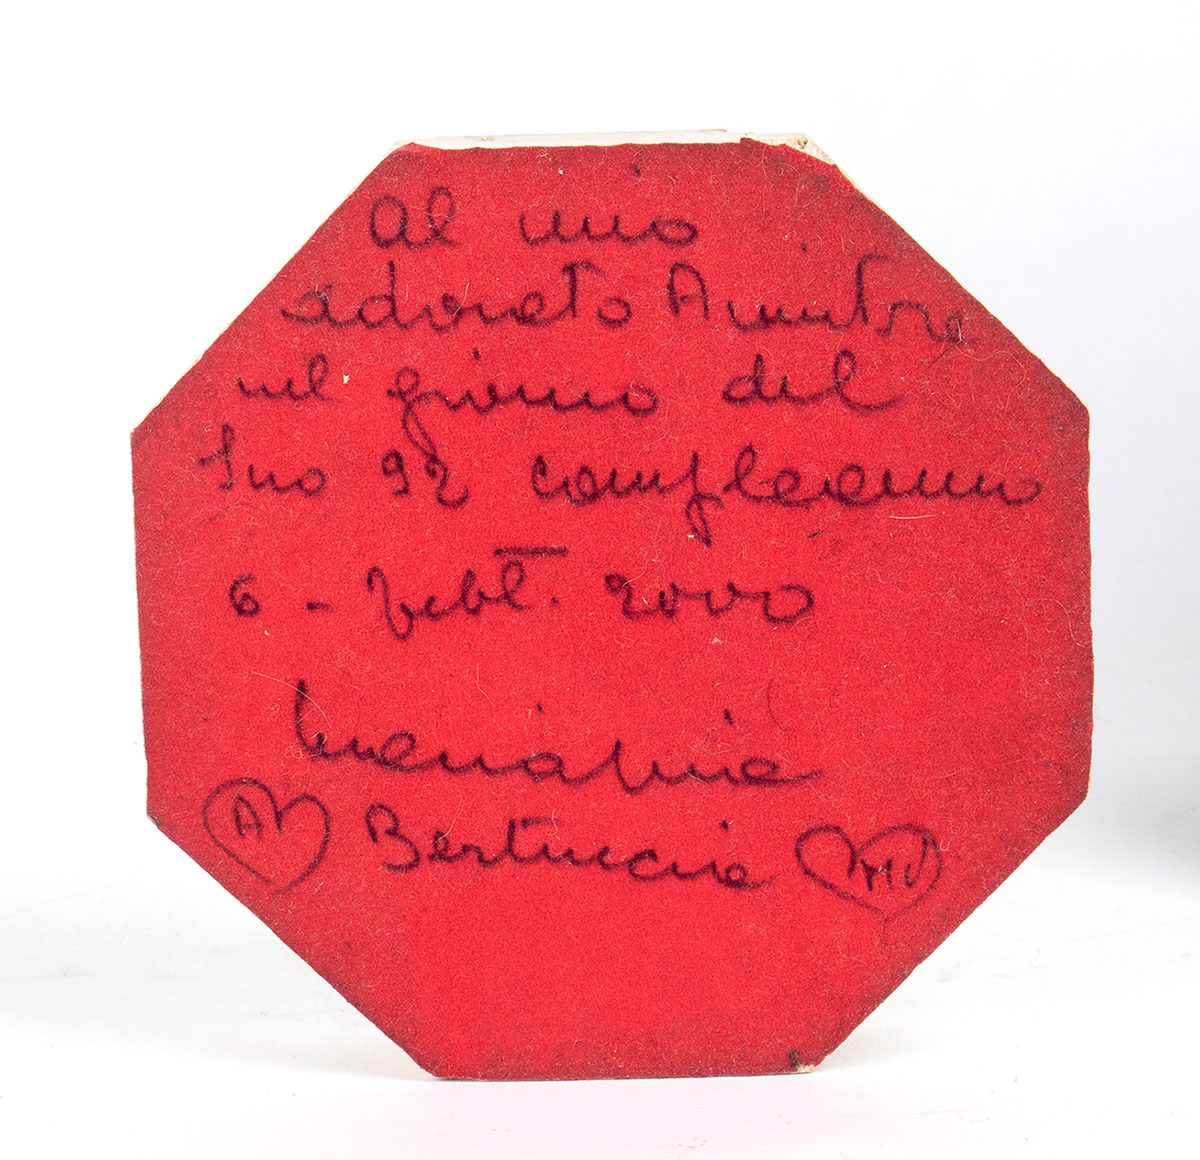 Al mio
adorato Amintore
nel giorno del
Suo 92 compleanno
6 - 2000
Mariapia
A Bertuccia